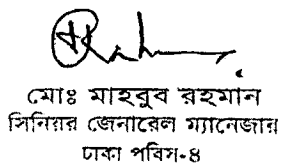 মোঃ মাহবুব রহমান
সিনিয়র জেনারেল ম্যানেজার
ঢাকা পবিস-৪